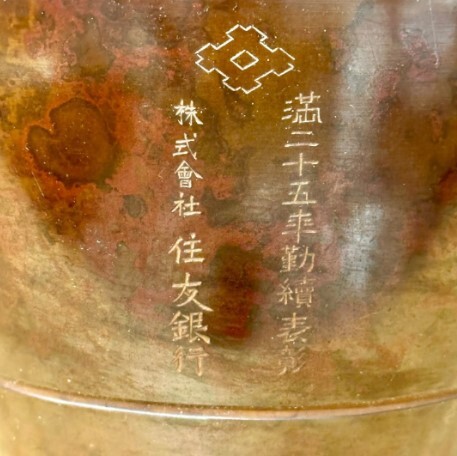 満二十五年勤續表彰
株式會社 住友銀行